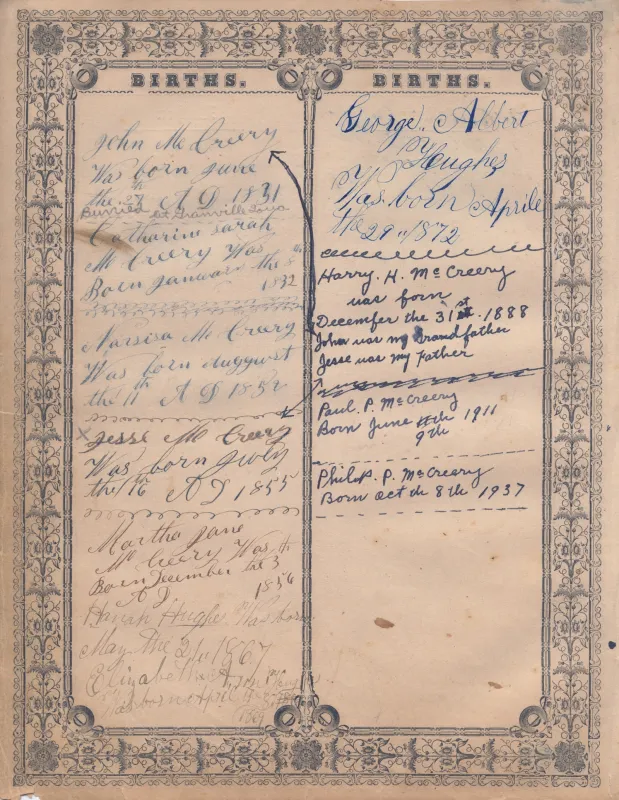 BIRTHS.
John Mc Creery
Was born June
the 23 A D. 1831
Burried at Granville Iowa
Catharine Sarah
Mc Creery Was
Boen January the 8th
1832
Narsisa Mc Creery
Was born auggust
the 11th A D 1852
x Jesse Mc Creery
Was born July
the 16 A D 1855
Martha Jane
Mc Creery Was
Boen December the 3
A D. 1856
Hannah Hughes Was born
May the 21 1867
Elizabeth Ann
Was born April
1869
BIRTHS.
George. Albert
Hughes
Was born Aprile
the 29" 1872
Harry. H. McCreery
was born
December the 31st. 1888
John was my Grandfather
Jesse was my father
Paul. P. McCreery
Born June 11th 1911
9th
Philip. P. McCreery
Born oct th 8th 1937